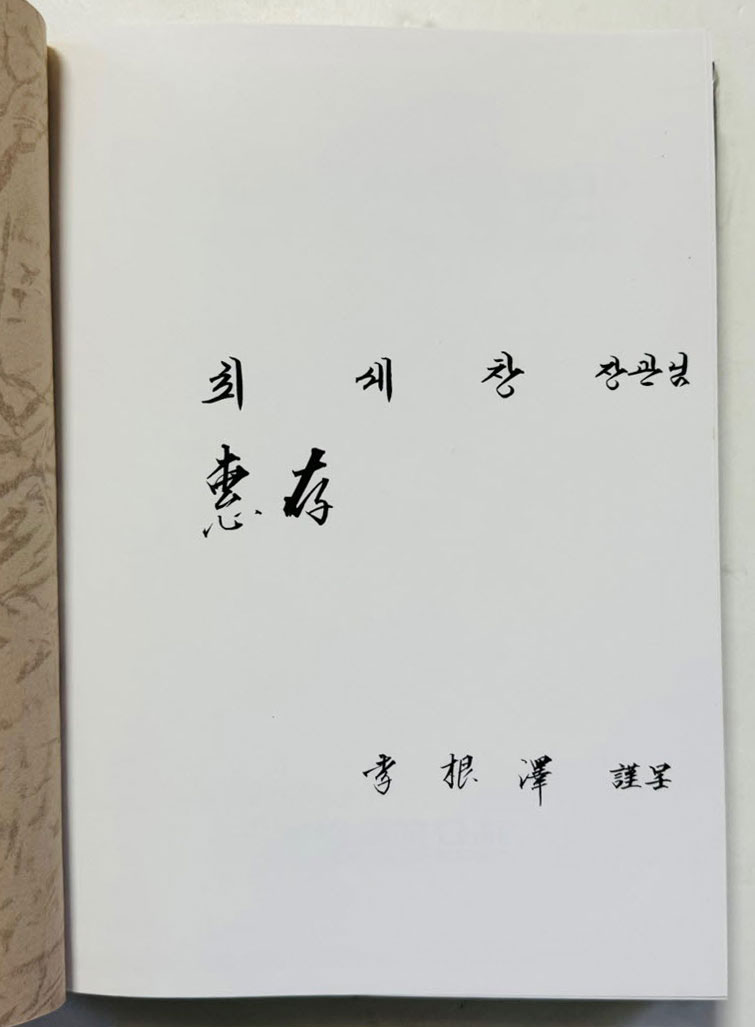 최 세 창 장관님
惠存
李根澤 謹呈